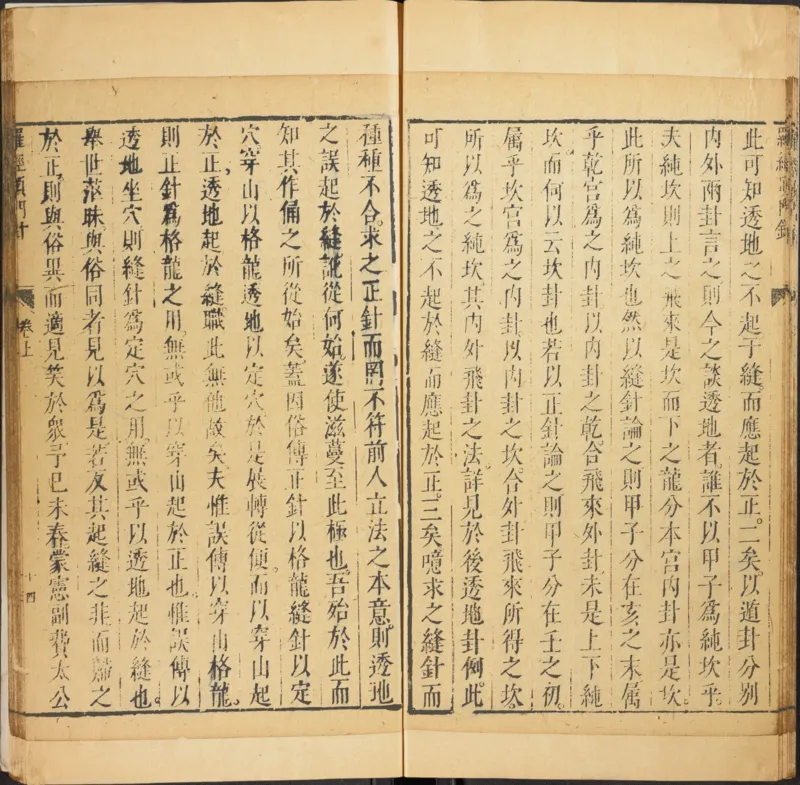 此可知透地之不起于縫。而應起於正。二矣。以遁卦分別
內外兩卦言之。則今之談透地者。誰不以甲子爲純坎乎。
夫純坎則上之飛來是坎而下之龍分本宮內卦亦是坎。
此所以爲純坎也。然以縫針論之。則甲子分在亥之末。屬
乎乾宮爲之內卦。以內卦之乾。合飛來外卦。未是上下純
坎。而何以云坎卦也。若以正針論之。則甲子分在壬之初。
屬乎坎宮爲之內卦。以內卦之坎。合外卦飛來所得之坎。
所以爲之純坎。其內外飛卦之法。詳見於後透地卦例。此
可知透地之不起於縫而應起於正。三矣。噫。求之縫針而
種種不合。求之正針而罔不符前人立法之本意。則透地
之誤起於縫。訛從何始。遂使滋蔓至此極也。吾始於此而
知其作俑之所從始矣。蓋因俗傳正針以格龍。縫針以定
穴。穿山以格龍。透地以定穴。於是展轉從便。而以穿山起
於正。透地起於縫。職此無他故矣。夫惟誤傳以穿山格龍。
則正針爲格龍之用。無或乎以穿山起於正也。惟誤傳以
透地坐穴。則縫針爲定穴之用。無或乎以透地起於縫也。
舉世茫昧。與俗同者見以爲是。若反其起縫之非而歸之
於正。則與俗異而適見笑於衆子。己未春。蒙憲副費太公
羅經頂門針
卷上
十四